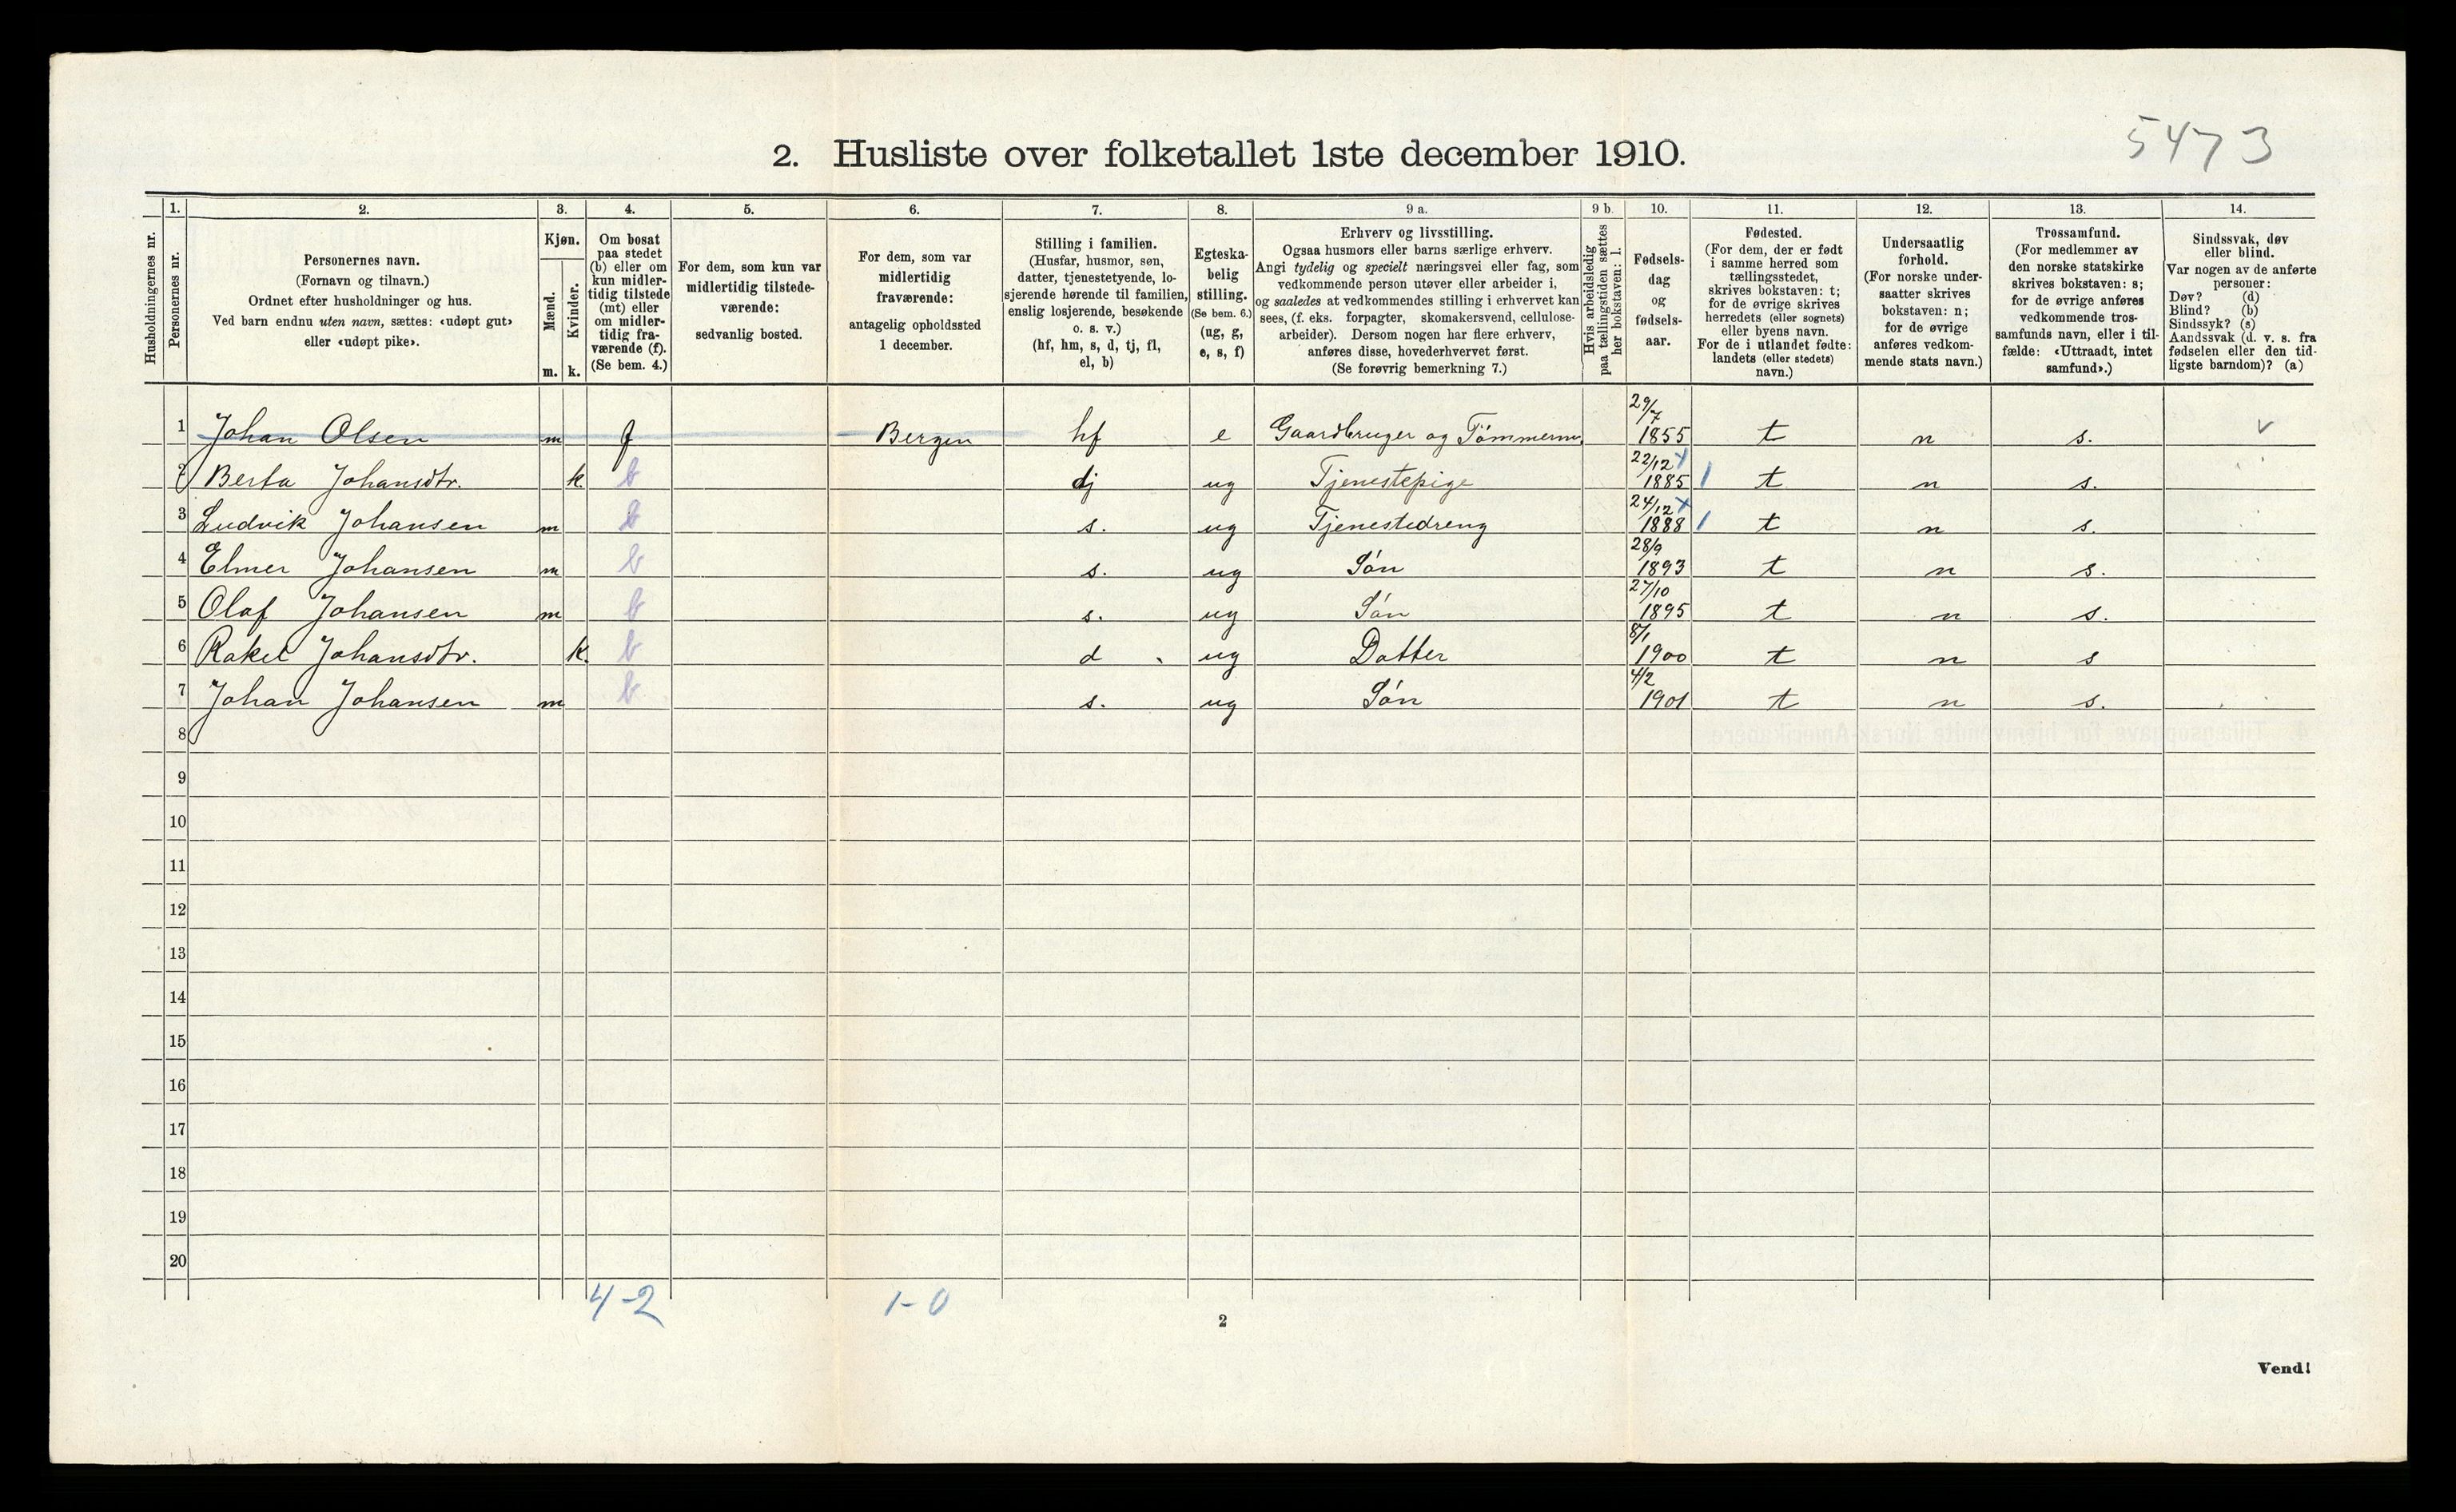 5473
2. Husliste over folketallet 1ste december 1910.
Husholdningernes nr.
1.
Personernes nr.
2.
Personernes navn.
(Fornavn og tilnavn.)
Ordnet efter husholdninger og hus.
Ved barn endnu uten navn, sættes: «udøpt gut»
eller «udøpt pike».
3.
Kjøn.
Mænd.
m.
Kvinder.
k.
4.
Om bosat
paa stedet
(b) eller om
kun midler-
tidig tilstede
(mt) eller
om midler-
tidig fra-
værende (f).
(Se bem. 4.)
5.
For dem, som kun var
midlertidig tilstede-
værende:
sedvanlig bosted.
6.
For dem, som var
midlertidig
fraværende:
antagelig opholdssted
1 december.
7.
Stilling i familien.
(Husfar, husmor, søn,
datter, tjenestetyende, lo-
sjerende hørende til familien,
enslig losjerende, besøkende
o. s. v.)
(hf, hm, s, d, tj, fl,
el, b)
8.
Egteska-
belig
stilling.
(Se bem. 6.)
(ug, g,
e, s, f)
9 a.
Erhverv og livsstilling.
Ogsaa husmors eller barns særlige erhverv.
Angi tydelig og specielt næringsvei eller fag, som
vedkommende person utøver eller arbeider i,
og saaledes at vedkommendes stilling i erhvervet kan
sees, (f. eks. forpagter, skomakersvend, cellulose-
arbeider). Dersom nogen har flere erhverv,
anføres disse, hovederhvervet først.
(Se forøvrig bemerkning 7.)
9 b.
Hvis arbeidsledig
paa tællingstiden sættes
her bokstaven: l.
10.
Fødsels-
dag
og
fødsels-
aar.
11.
Fødested.
(For dem, der er født
i samme herred som
tællingsstedet,
skrives bokstaven: t;
for de øvrige skrives
herredets (eller sognets)
eller byens navn.
For de i utlandet fødte:
landets (eller stedets)
navn.)
12.
Undersaatlig
forhold.
(For norske under-
saatter skrives
bokstaven: n;
for de øvrige
anføres vedkom-
mende stats navn.)
13.
Trossamfund.
(For medlemmer av
den norske statskirke
skrives bokstaven: s;
for de øvrige anføres
vedkommende tros-
samfunds navn, eller i til-
fælde: «Uttraadt, intet
samfund».)
14.
Sindssvak, døv
eller blind.
Var nogen av de anførte
personer:
Døv? (d)
Blind? (b)
Sindssyk? (s)
Aandssvak (d. v. s. fra
fødselen eller den tid-
ligste barndom)? (a)
1 Johan Olsen m f Bergen hf e Gaardbruger og Tömmerm. 29/7 1855 t n s. v
2 Berta Johansdtr. k. b dj ug Tjenestepige 22/12 1885 t n s.
3 Ludvik Johansen m b s. ug Tjenestedreng 24/12 1888 t n s.
4 Elmer Johansen m b s. ug Són 28/9 1893 t n s.
5 Olaf Johansen m b s. ug Són 27/10 1895 t n s.
6 Rakel Johansdtr. k. b d ug Datter 8/1 1900 t n s
7 Johan Johansen m b s. ug Són 4/2 1901 t n s.
8
9
10
11
12
13
14
15
16
17
18
19
20
4-2 1-0
2
Vend!